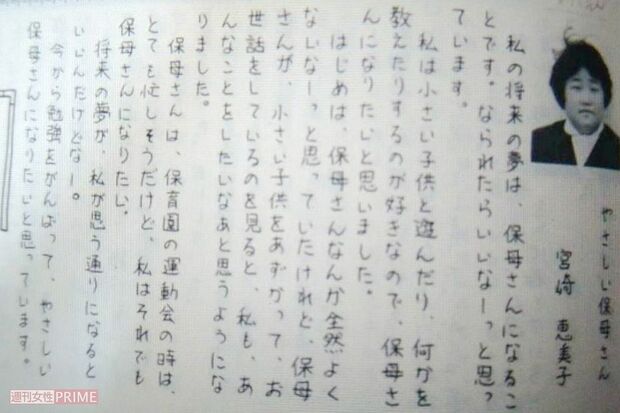 やさしい保母さん
宮崎 恵美子
私の将来の夢は、保母さんになるこ
とです。なられたらいいなーっと思っ
ています。
私は小さい子供と遊んだり、何かを
教えたりするのが好きなので、保母さ
んになりたいと思いました。
はじめは、保母さんなんか全然よく
ないなーっと思っていたけれど、保母
さんが、小さい子供をあずかって、お
世話をしているのを見ると、私も、あ
んなことをしたいなあと思うようにな
りました。
保母さんは、保育園の運動会の時は、
とても忙しそうだけど、私はそれでも
保母さんになりたい。
将来の夢が、私が思う通りになると
いいんだけどなー。
今から勉強をがんばって、やさしい
保母さんになりたいと思っています。
週刊女性PRIME